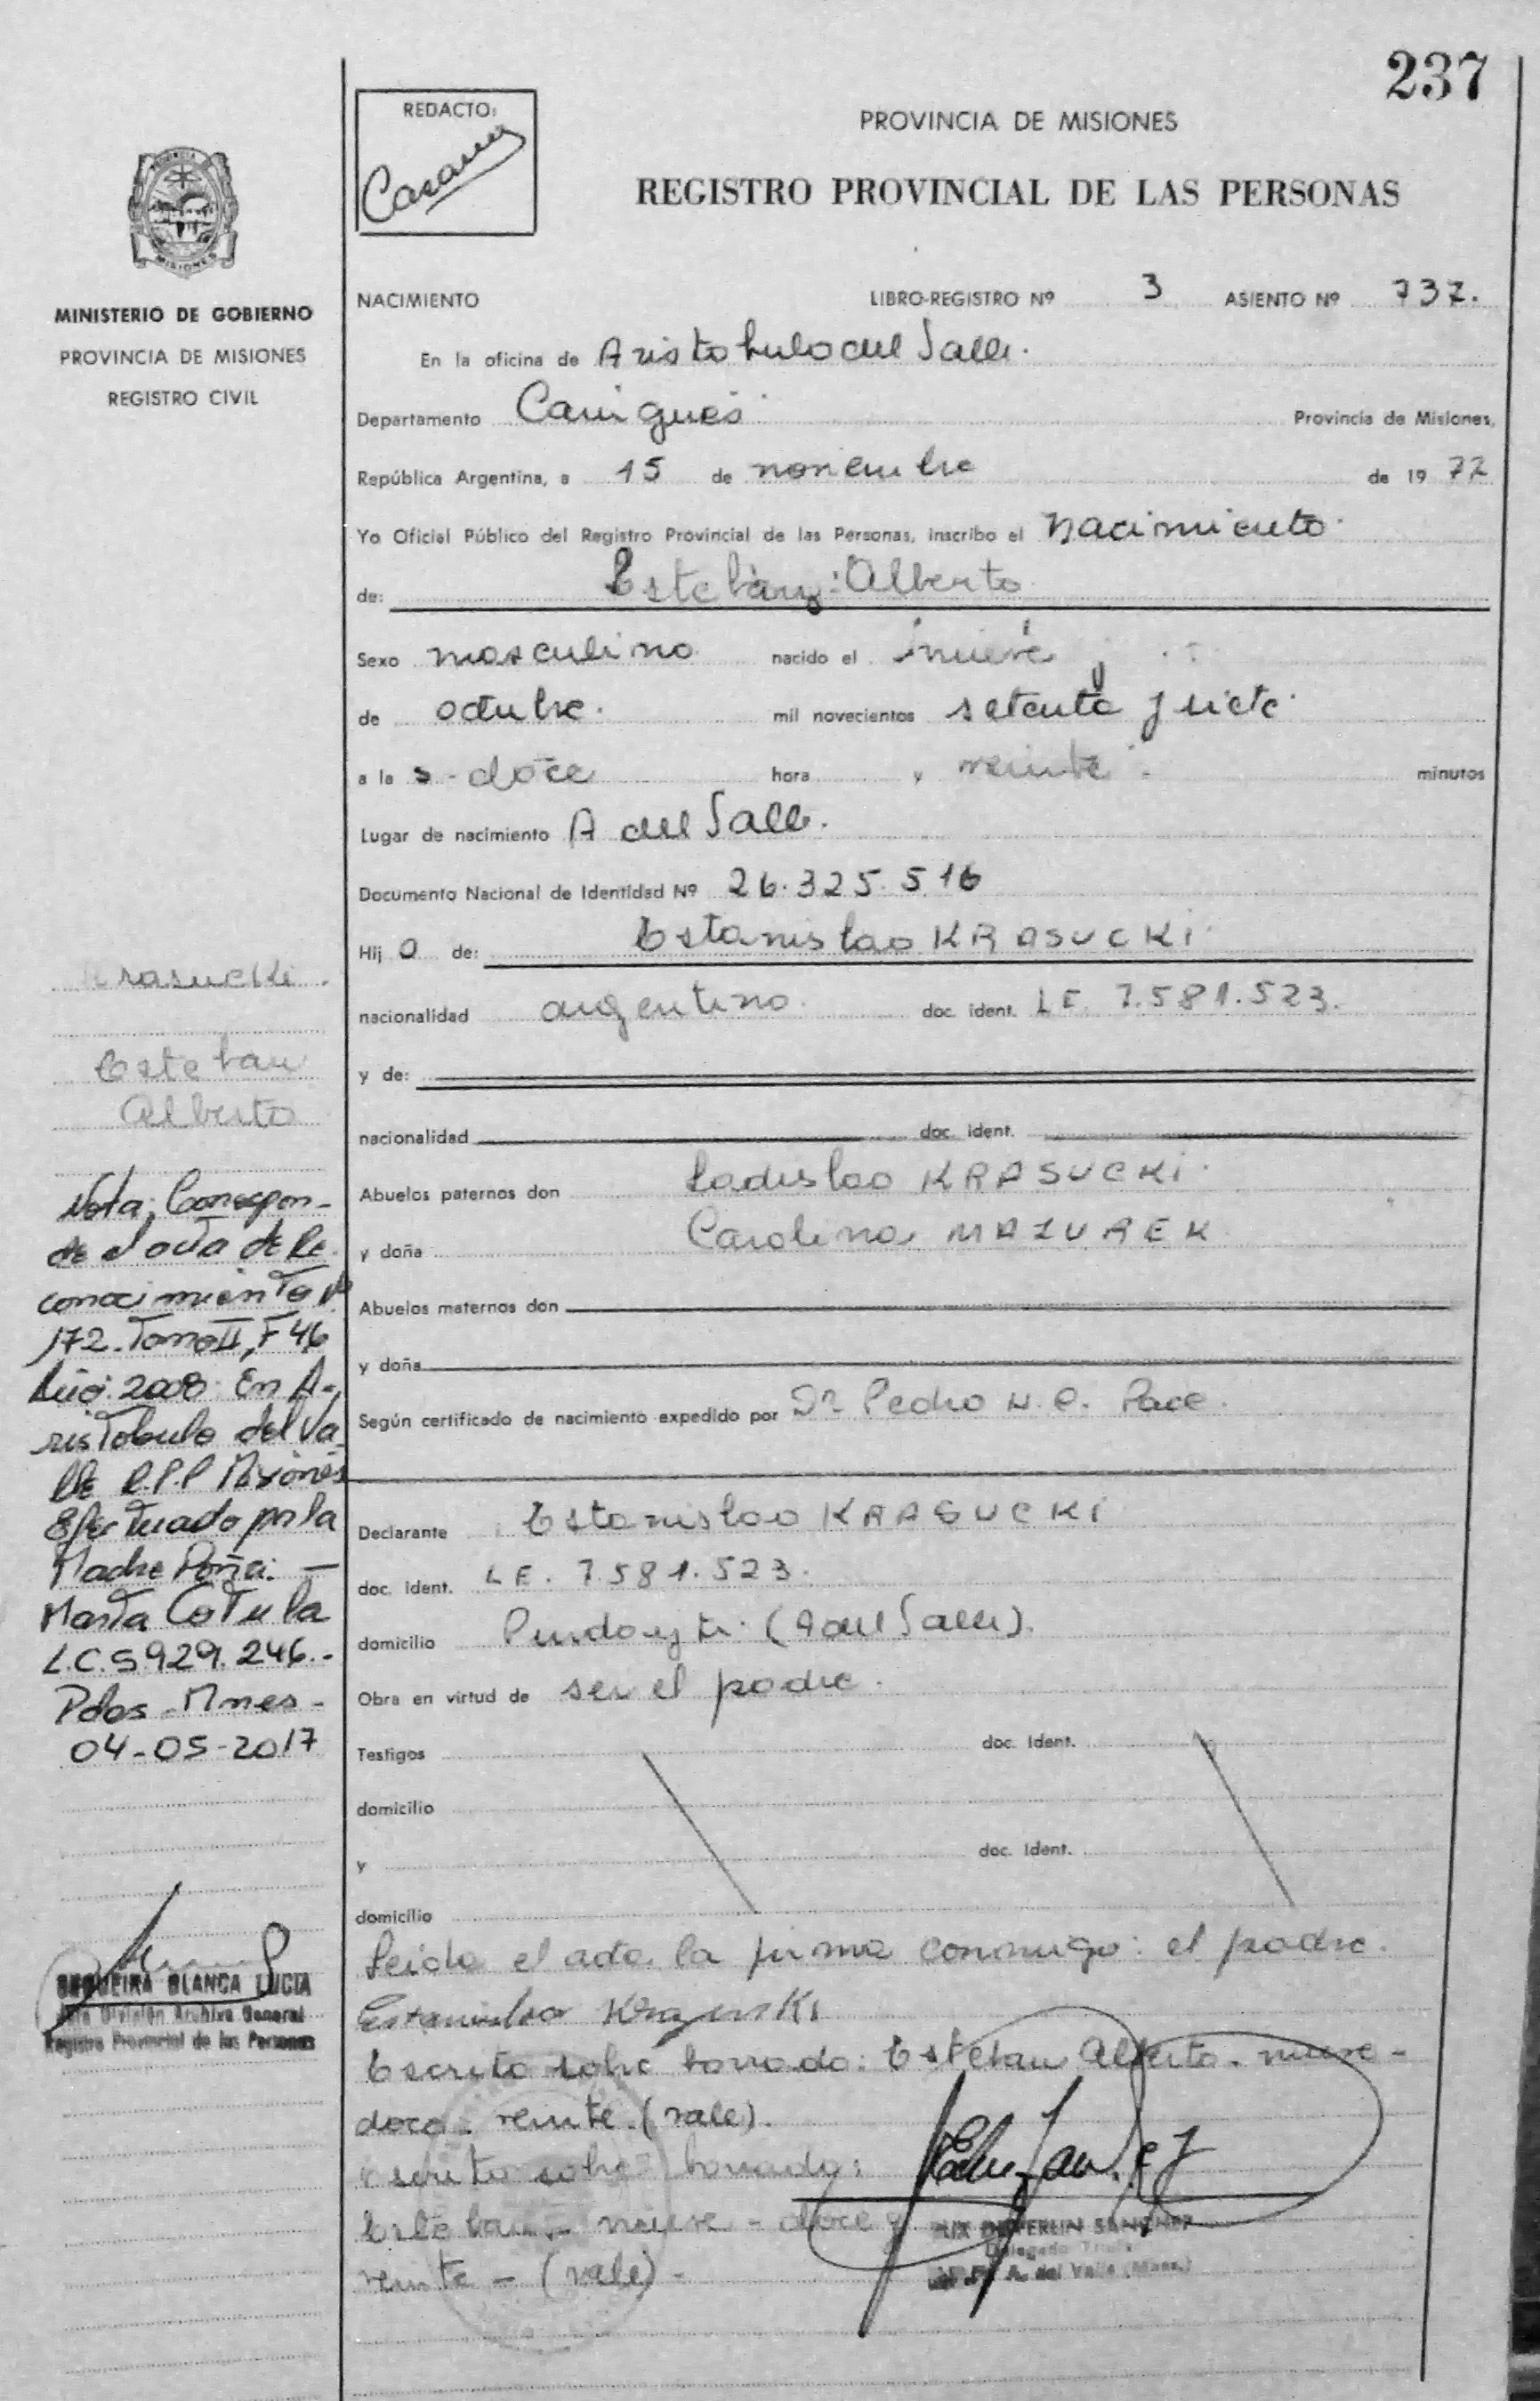 237
REDACTO:
PROVINCIA DE MISIONES
REGISTRO PROVINCIAL DE LAS PERSONAS
PROVINCIA
MISIONES
MINISTERIO DE GOBIERNO
PROVINCIA DE MISIONES
REGISTRO CIVIL
NACIMIENTO LIBRO-REGISTRO Nº 3 ASIENTO Nº 737.
En la oficina de Aristobulo del Valle.
Departamento Cainguas Provincia de Misiones,
República Argentina, a 15 de noviembre de 19 77
Yo Oficial Público del Registro Provincial de las Personas, inscribo el nacimiento
de: Esteban Alberto
Sexo masculino nacido el nueve
de octubre. mil novecientos setenta y siete
a la s - doce hora y veinte minutos
Lugar de nacimiento A del Valle.
Documento Nacional de Identidad Nº 26.325.516
Hij o de: Estanislao KRASUCKI
nacionalidad argentino. doc. ident. LE. 7.581.523.
y de:
nacionalidad doc. ident.
Abuelos paternos don Ladislao KRASUCKI
y doña Carolina MAZUREK
Abuelos maternos don
y doña
Según certificado de nacimiento expedido por Dr Pedro N. C. Pace.
Declarante Estanislao KRASUCKI
doc. ident. LE. 7.581.523.
domicilio (A del Valle).
Obra en virtud de ser el padre.
Testigos doc. ident.
domicilio
y doc. ident.
domicilio
Leida el acta la firma conmigo: el padre.
Estanislao
Escrito sobre borrado: Esteban Alberto. nueve -
doce. veinte. (vale).
Escrito sobre borrado:
Esteban - nueve - doce y
veinte - (vale) -
SANCHEZ
Delegado
A. del Valle (Mnes.)
Krasucki.
Esteban
Alberto
Nota: Correspon-
de el acta de Re
conocimiento Nº
172. Tomo II, F 46
Año: 2008. En A-
ristobulo del Va
lle R.P.P Misiones
Efectuado por la
Madre Doña: -
Marta Cotula
L.C. 5.929.246.-
Pdas - Mnes -
04-05-2017
SEQUEIRA BLANCA LUCIA
Jefe División Archivo General
Registro Provincial de las Personas